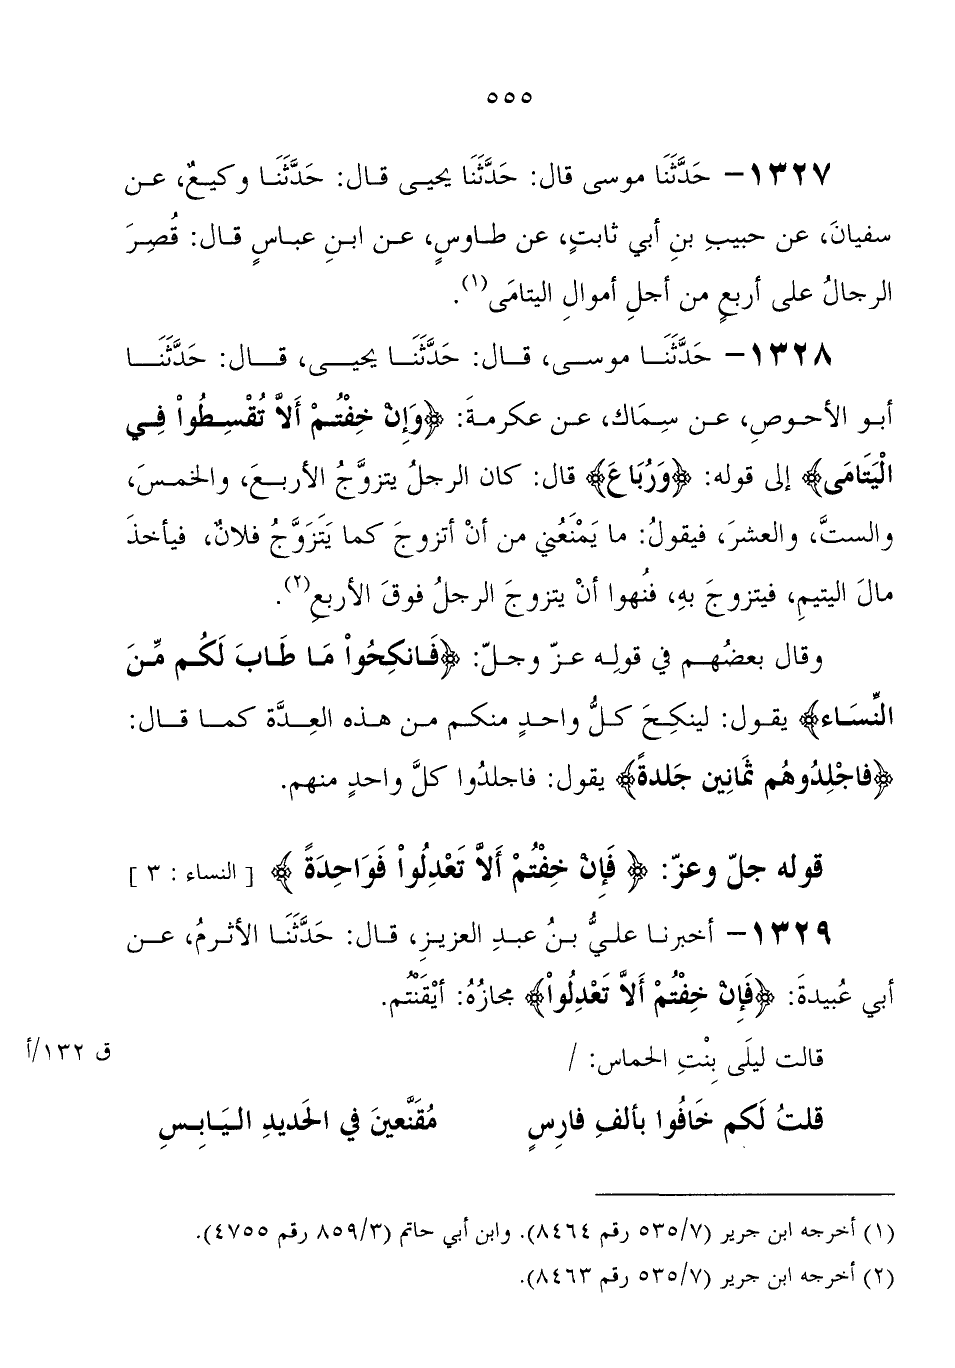 ٥٥٥
١٣٢٧- حَدَّثَنَا موسى قال: حَدَّثَنَا يحيى قـال: حَدَّثَنَـا وكيـعٌ، عـن
سفيانَ، عن حبيبِ بنِ أبي ثابتٍ، عن طـاوسٍ، عـن ابـنِ عبـاسٍ قـال: قُصِـرَ
الرجالُ على أربعٍ من أجلِ أموالِ اليتامَى(١).
١٣٢٨- حَدَّثَنَـا موسـى، قـال: حَدَّثَنَـا يحيـى، قـال: حَدَّثَنَـا
أبـو الأحـوصِ، عـن سِـمَاك، عـن عكرمـةَ: ﴿وَإِنْ خِفْتُـمْ أَلاَّ تُقْسِـطُواْ فِـي
الْيَتَامَى﴾ إلى قوله: ﴿وَرُبَاعَ﴾ قال: كان الرجلُ يتزوَّجُ الأربـعَ، والخمـسَ،
والسـتَّ، والعشرَ، فيقولُ: ما يَمْنَعُني من أنْ أتزوجَ كما يَتَزَوَّجُ فلانٌ، فيأخذَ
مالَ اليتيمِ، فيتزوجَ بهِ، فنُهوا أنْ يتزوجَ الرجلُ فوقَ الأربعِ(٢).
وقال بعضُهـم في قولِـه عـزّ وجـلّ: ﴿فَـانكِحُواْ مَـا طَـابَ لَكُـم مِّـنَ
النِّسَـاء﴾ يقـول: لينكِـحَ كـلُّ واحـدٍ منكـم مـن هـذه العِـدَّة كمـا قـال:
﴿فاجْلِدُوهُم ثمَانِين جَلدةً﴾ يقول: فاجلدُوا كلَّ واحدٍ منهم.
قوله جلّ وعزّ: ﴿ فَإِنْ خِفْتُمْ أَلاَّ تَعْدِلُواْ فَوَاحِدَةً ﴾ [ النساء : ٣ ]
١٣٢٩- أخبرنـا علـيُّ بـنُ عبـدِ العزيـزِ، قـال: حَدَّثَنَـا الأثـرمُ، عـن
أبي عُبيدةَ: ﴿فَإِنْ خِفْتُمْ أَلاَّ تَعْدِلُواْ﴾ مجازُهُ: أيْقَنْتُم.
قالت ليلَى بِنْتِ الحماس: /
ق ١٣٢/أ
قلتُ لَكم خَافُوا بألفِ فارِسٍ مُقَنَّعينَ في الحَديدِ اليَابِـسِ
(١) أخرجه ابن جرير (٥٣٥/٧ رقم ٨٤٦٤). وابن أبي حاتم (٨٥٩/٣ رقم ٤٧٥٥).
(٢) أخرجه ابن جرير (٥٣٥/٧ رقم ٨٤٦٣).